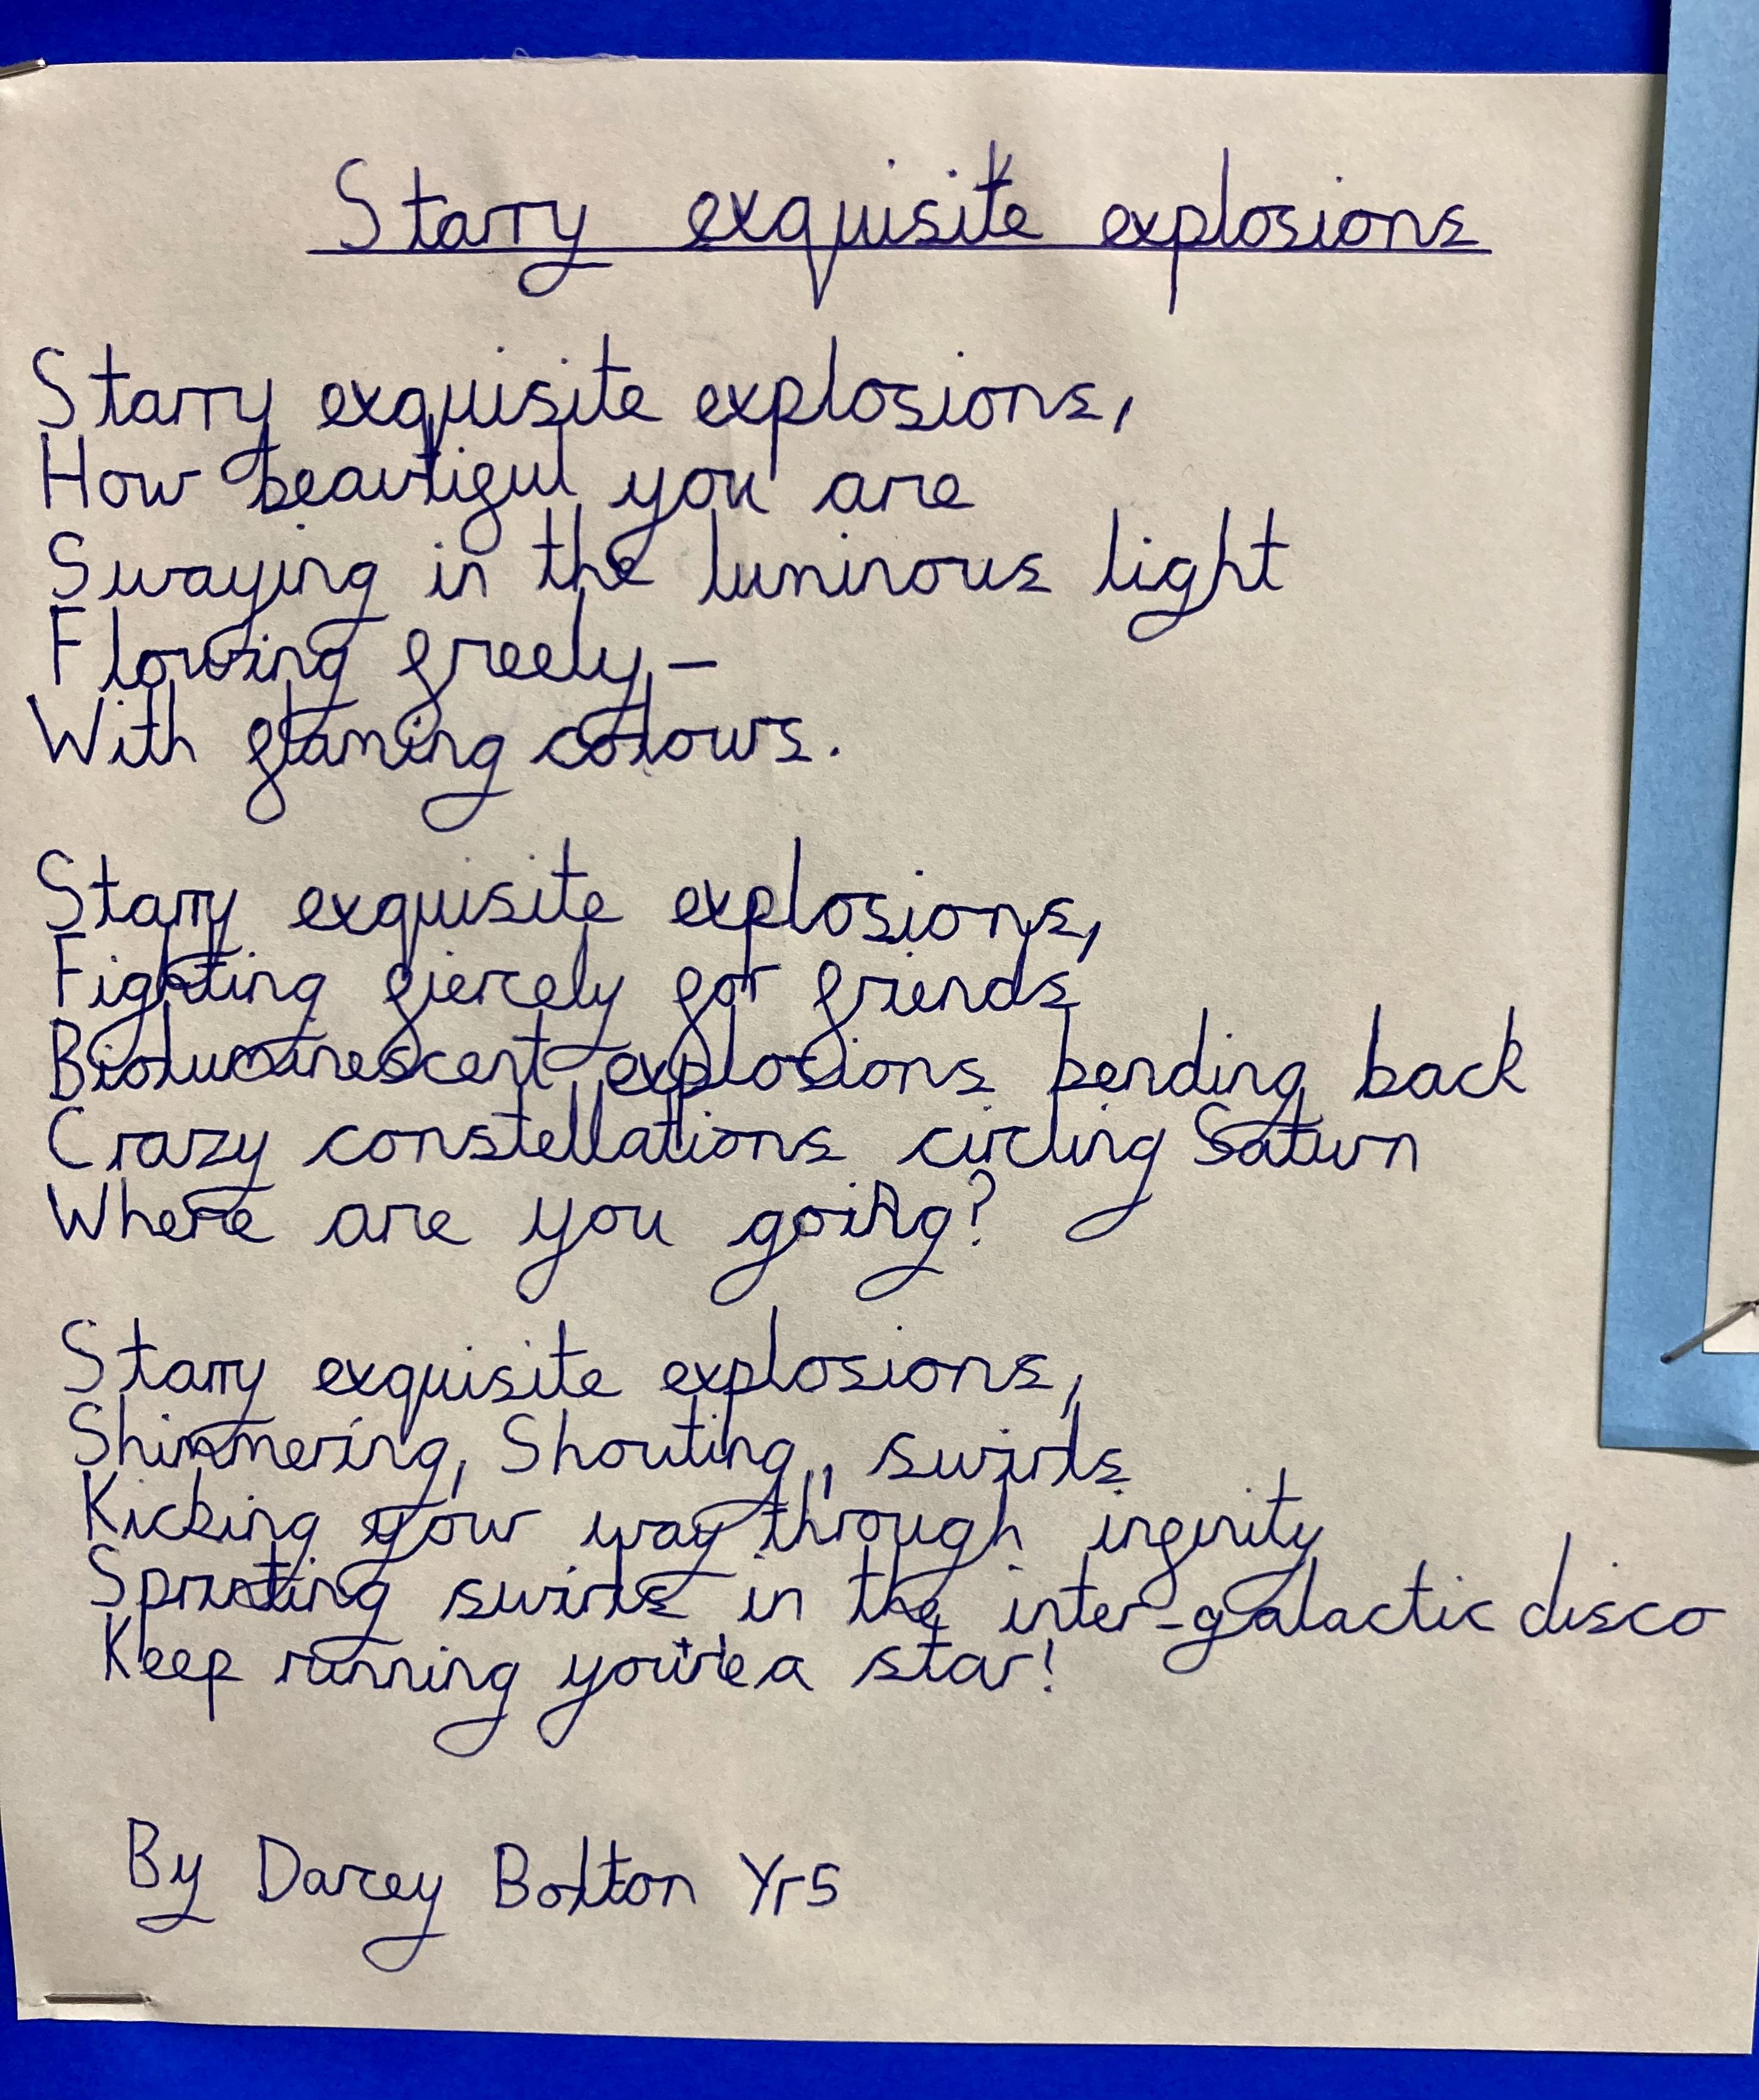 Starry exquisite explosions
Starry exquisite explosions,
How beautiful you are
Swaying in the luminous light
Flowing freely,-
With flaming colours.
Starry exquisite explosions,
Fighting fiercely for friends
Bioluminescent explosions bending back
Crazy constellations circling Saturn
Where are you going?
Starry exquisite explosions,
Shimmering, Shouting,, swirls
Kicking your way through infinity
Sprinting swirls in the inter-galactic disco
Keep running you're a star!
By Darcey Bolton Yr5